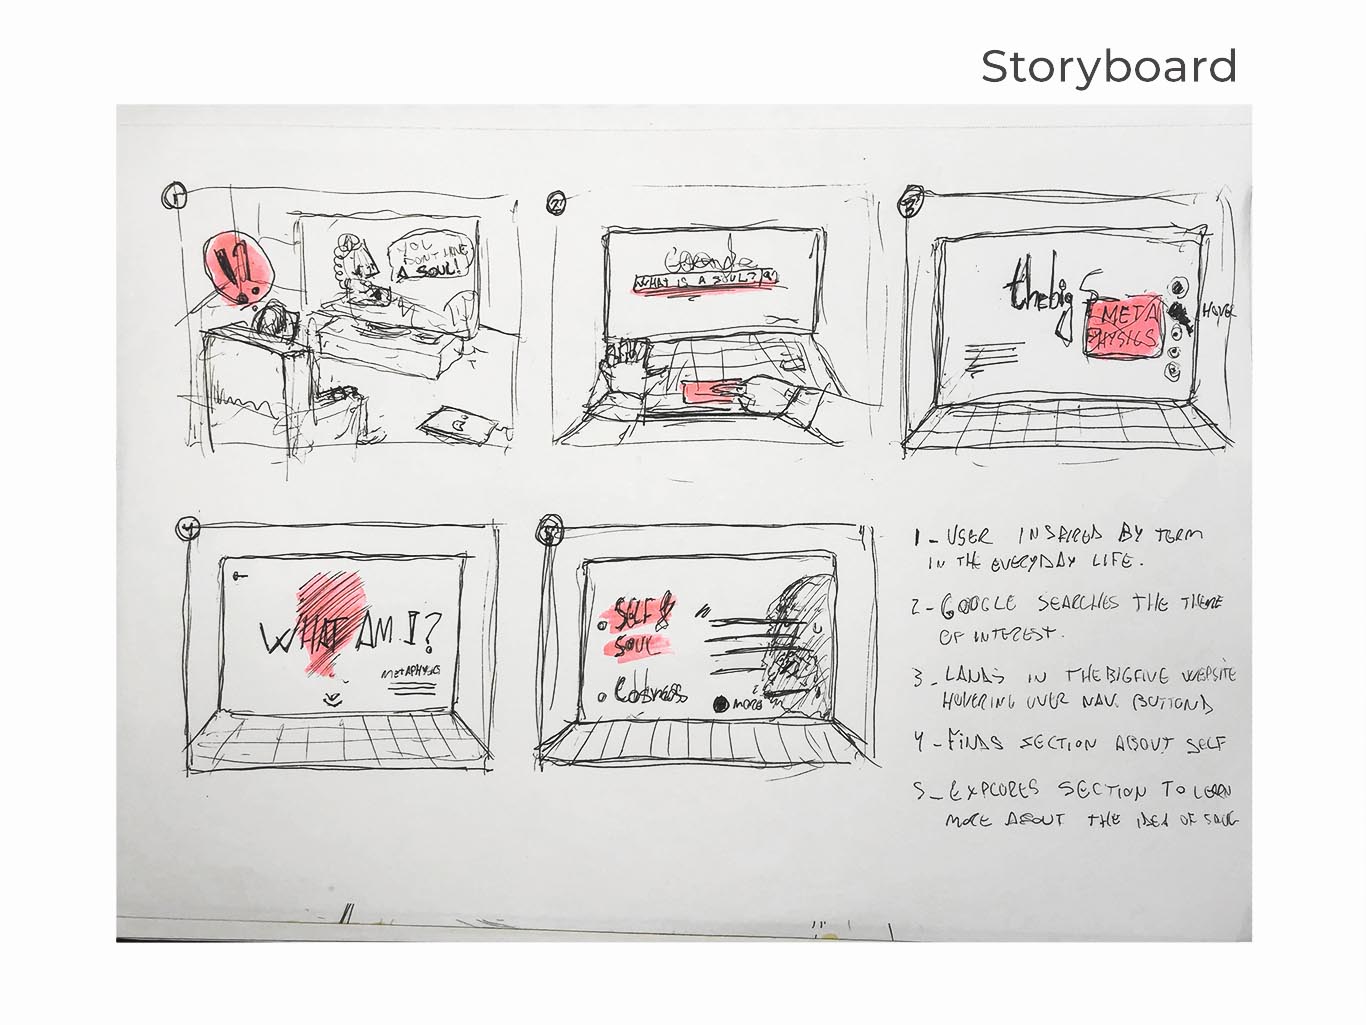 Storyboard
1
!?
YOU
DON'T HAVE
A SOUL!
2
WHAT IS A SOUL?
3
thebig 5
META
PHYSICS
HOVER
4
WHAT AM I?
METAPHYSICS
5
SELF &
SOUL
MORE
1 - USER INSPIRED BY TERM
IN THE EVERYDAY LIFE.
2 - GOOGLE SEARCHES THE THEME
OF INTEREST.
3 - LANDS IN THEBIGFIVE WEBSITE
HOVERING OVER NAV. BUTTONS
4 - FINDS SECTION ABOUT SELF
5 - EXPLORES SECTION TO LEARN
MORE ABOUT THE IDEA OF SOUL